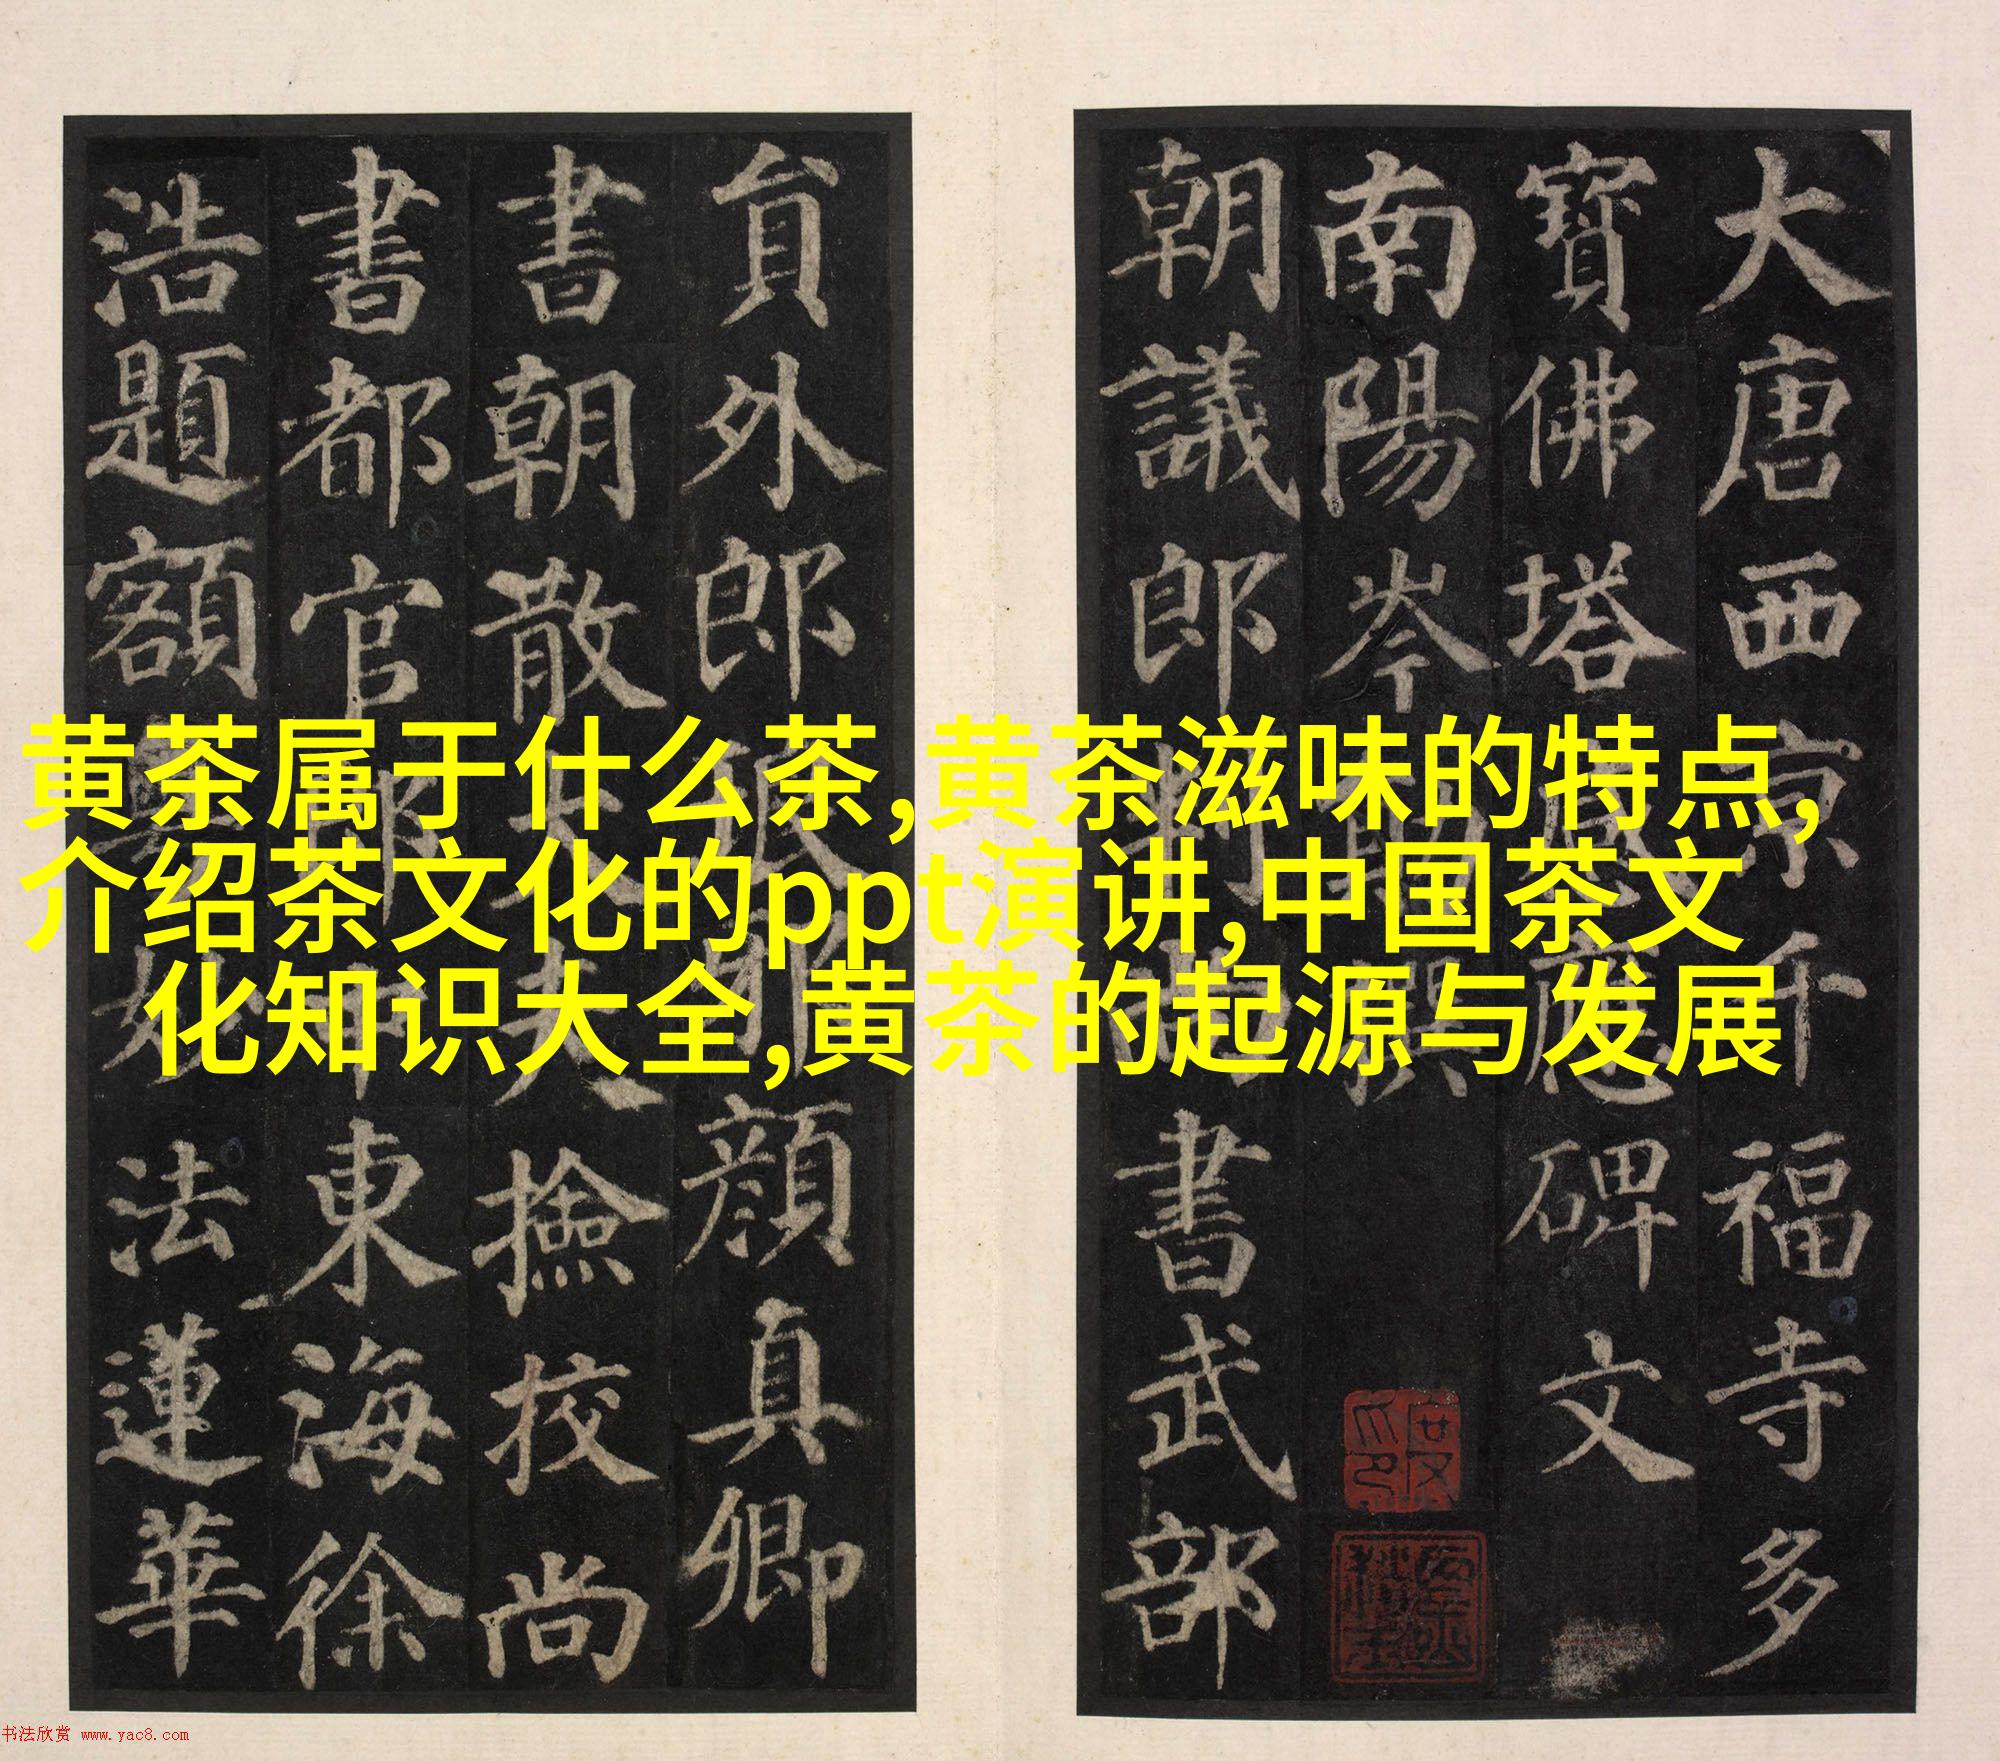 黄茶属于什么茶,黄茶滋味的特点,
介绍茶文化的ppt演讲,中国茶文
化知识大全,黄茶的起源与发展
大唐西京千福寺多
寶佛塔感應碑文
南陽岑勛撰
朝議郎判尚書武部
貟外郎琅邪顏真卿
書朝散大夫撿校尚
書都官郎中東海徐
浩題額粵妙法蓮華
书法欣赏 www.yac8.com